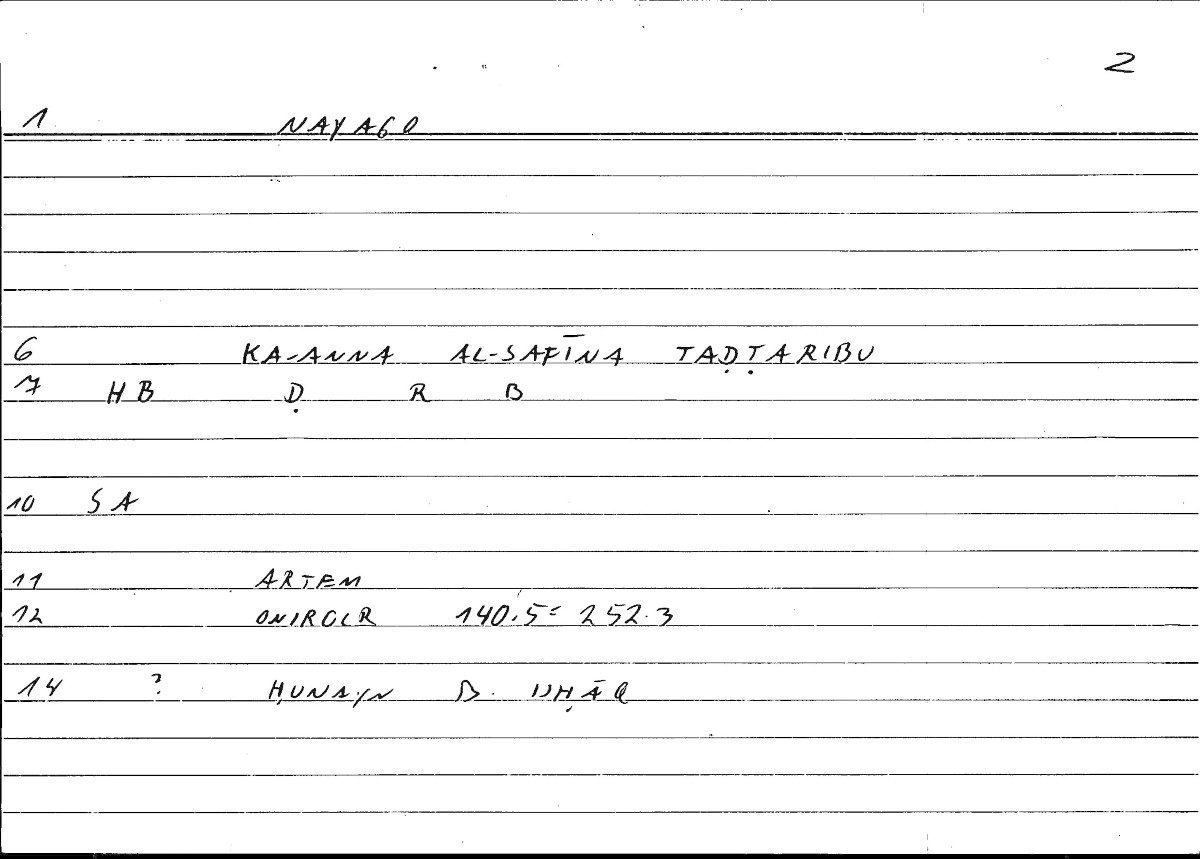 2
1 NAYAGO
6 KA-ANNA AL-SAFĪNA TAḌṬARIBU
7 HB Ḍ R B
10 SA
11 ARTEM
12 ONIROCR 140.5= 252.3
14 ? ḤUNAYN B. ISḤĀQ